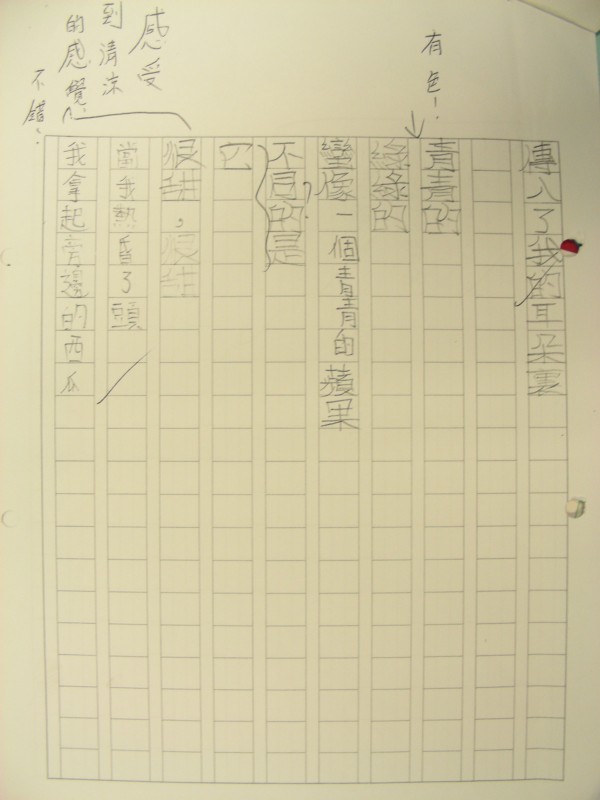 傳入了我的耳朵裏
青青的
綠綠的
蠻像一個青青的蘋果
不同的是
它
很甜，很甜
當我熱昏了頭
我拿起旁邊的西瓜
有色！
感受
到清涼
的感覺，
不錯。